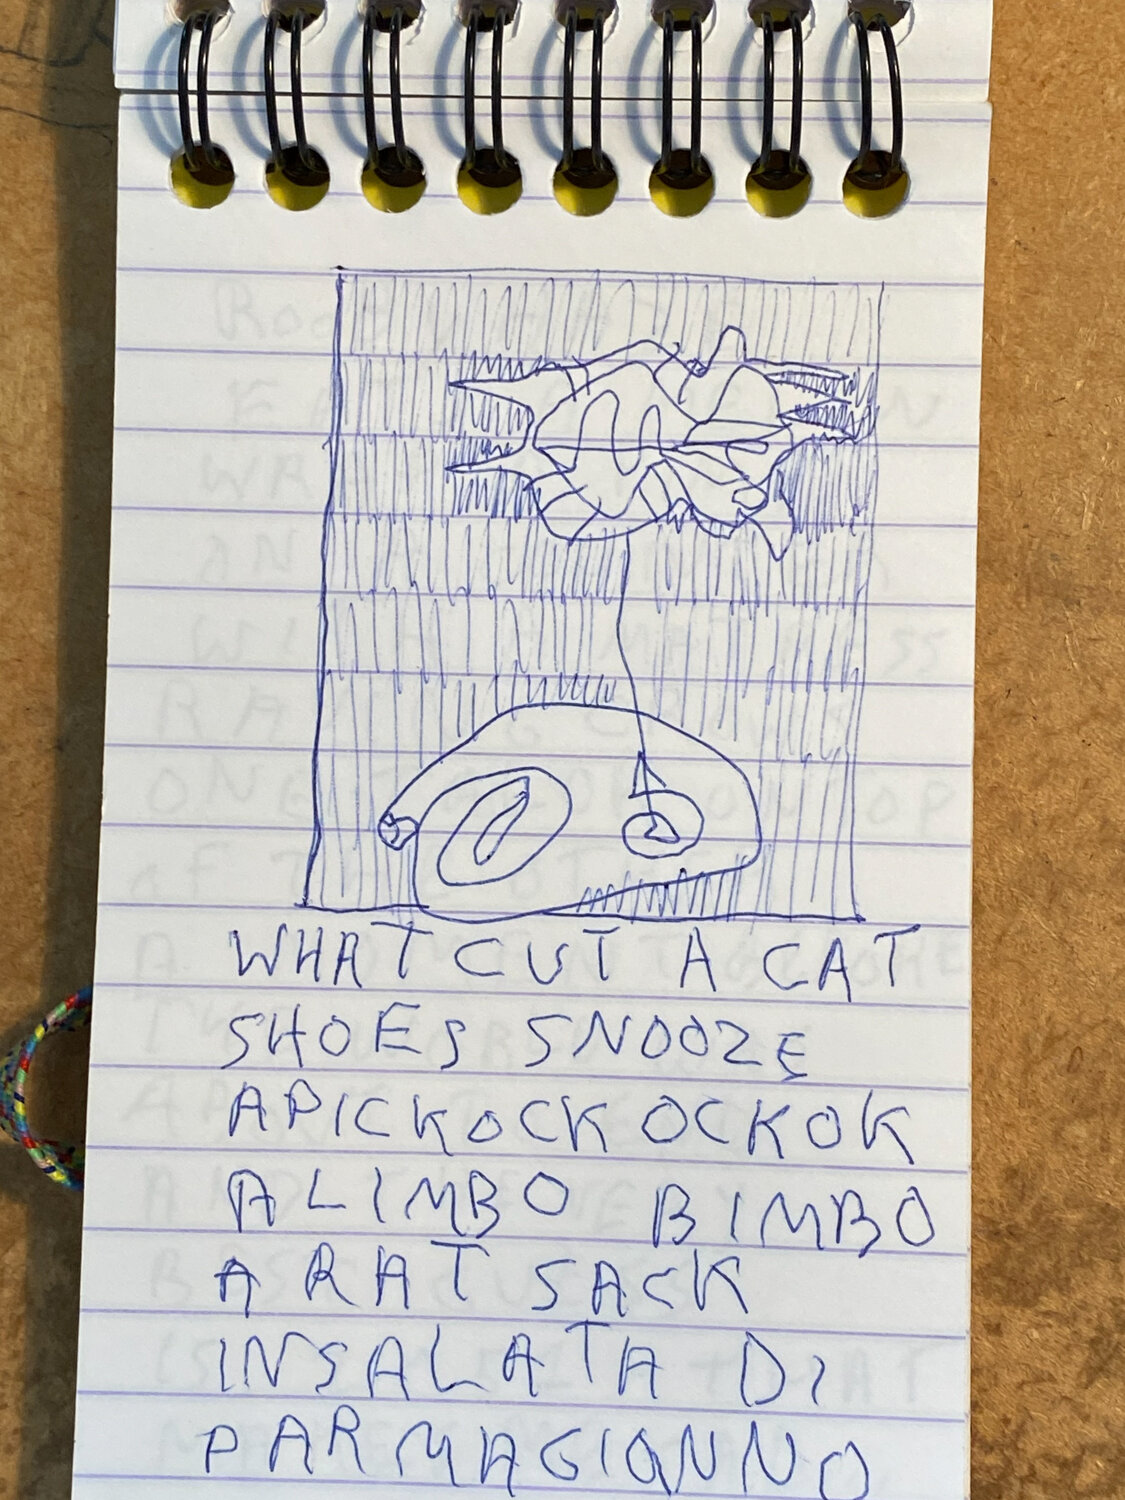 WHAT CUT A CAT
SHOES SNOOZE
APICKOCK OCKOK
ALIMBO BIMBO
A RAT SACK
INSALATA DI
PARMAGIANNO